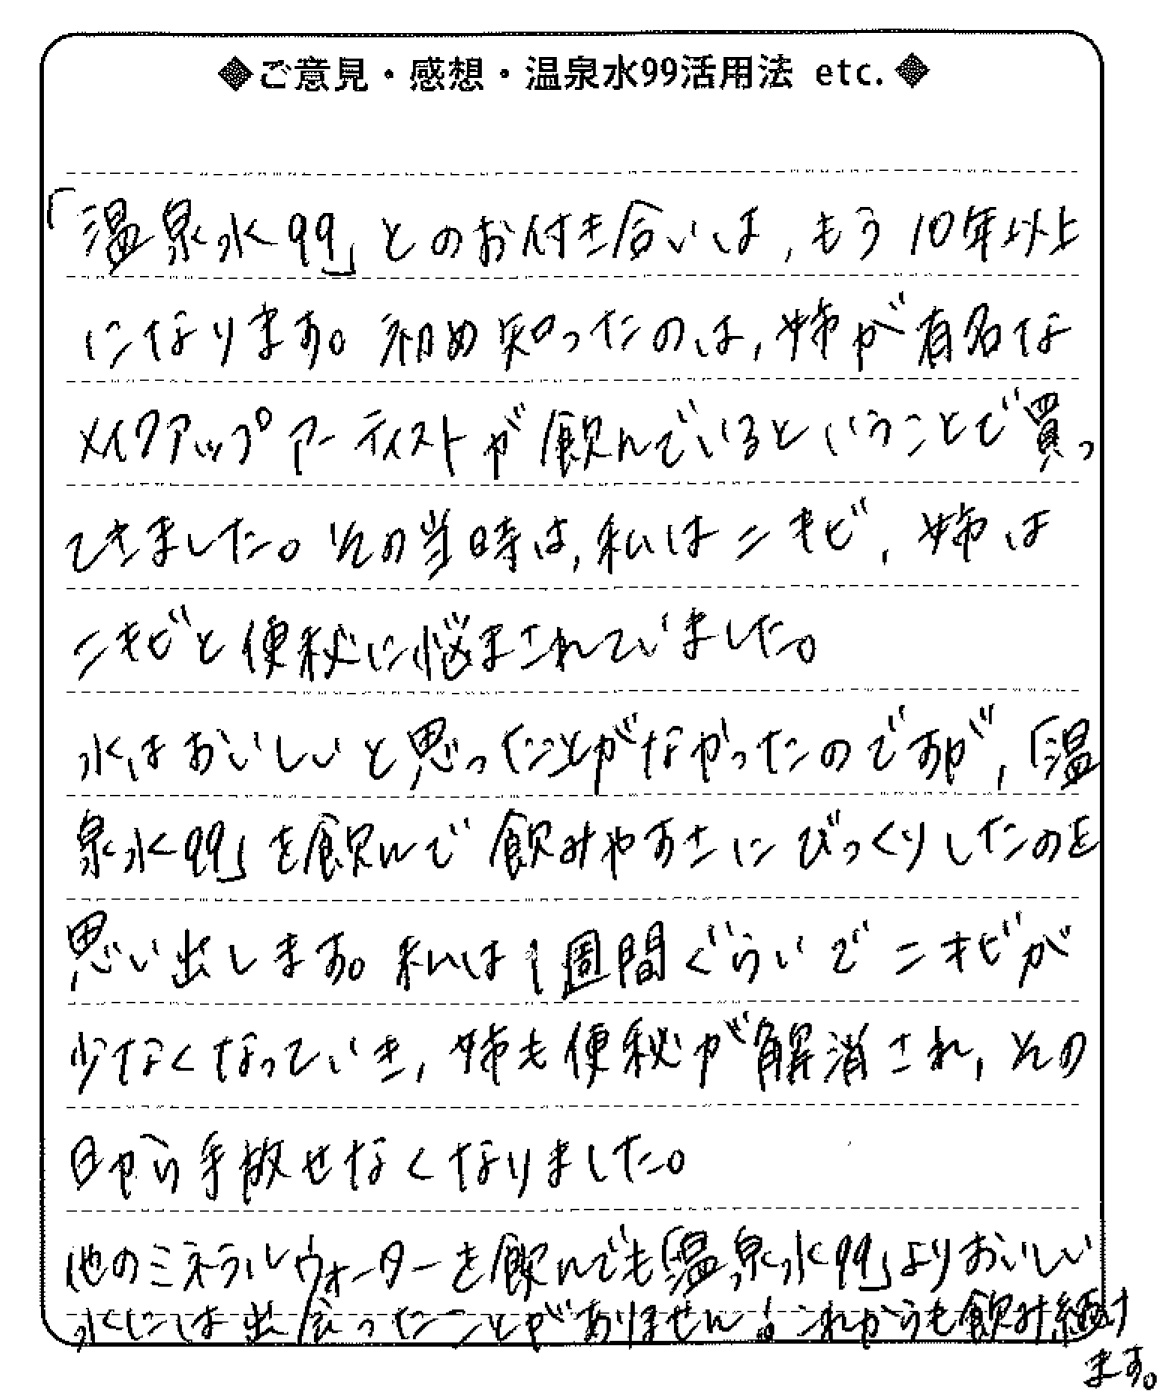 ◆ご意見・感想・温泉水99活用法 etc.◆
「温泉水99」とのお付き合いは、もう10年以上
になります。初め知ったのは、姉が有名な
メイクアップアーティストが飲んでいるということで買っ
てきました。その当時は、私はニキビ、姉は
ニキビと便秘に悩まされていました。
水はおいしいと思ったことがなかったのですが、「温
泉水99」を飲んで飲みやすさにびっくりしたのを
思い出します。私は1週間ぐらいでニキビが
少なくなっていき、姉も便秘が解消され、その
日から手放せなくなりました。
他のミネラルウォーターを飲んでも「温泉水99」よりおいしい
水には出会ったことがありません!これからも飲み続け
ます。